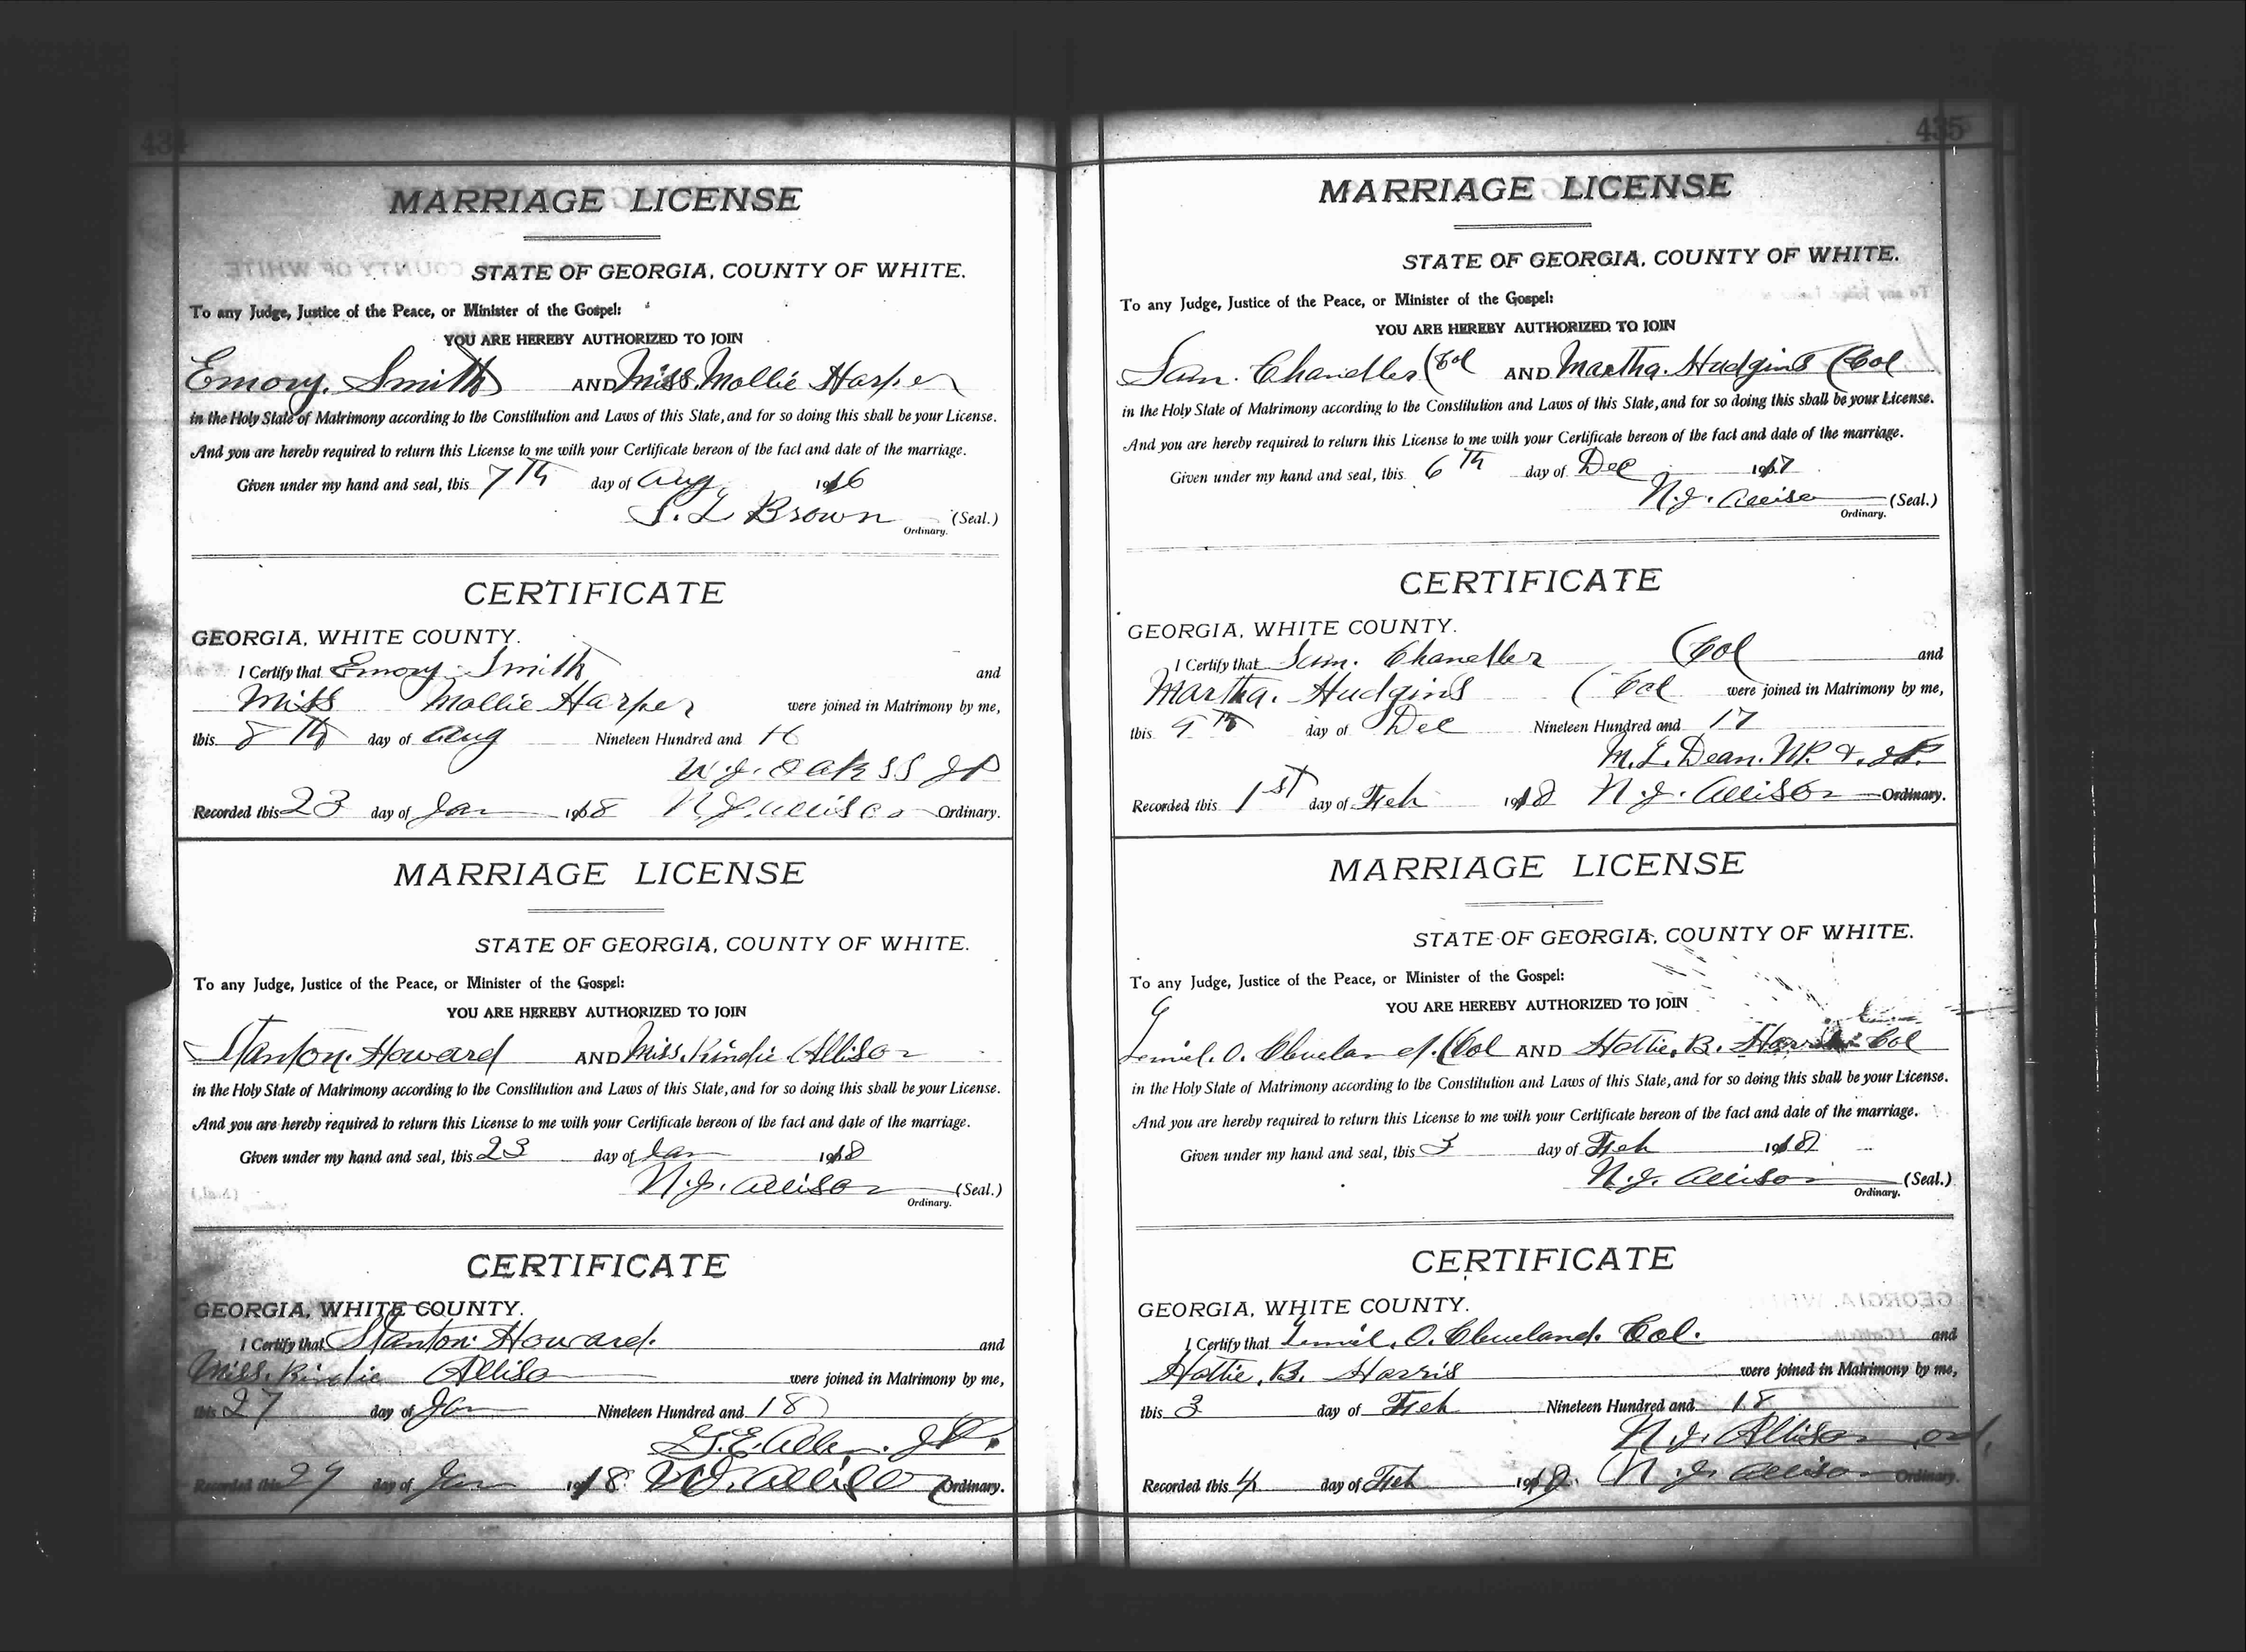 434
MARRIAGE LICENSE
STATE OF GEORGIA, COUNTY OF WHITE.
To any Judge, Justice of the Peace, or Minister of the Gospel:
YOU ARE HEREBY AUTHORIZED TO JOIN
Emory. Smith AND Miss. Mollie Harper
in the Holy State of Matrimony according to the Constitution and Laws of this State, and for so doing this shall be your License.
And you are hereby required to return this License to me with your Certificate hereon of the fact and date of the marriage.
Given under my hand and seal, this 7th day of Aug 1916
S. L Brown (Seal.)
Ordinary.
CERTIFICATE
GEORGIA, WHITE COUNTY.
I Certify that Emory Smith and
Miss Mollie Harper were joined in Matrimony by me,
this 8th day of Aug Nineteen Hundred and 16
W. J. Oakss JP
Recorded this 23 day of Jan 1918 N. J. Allison Ordinary.
MARRIAGE LICENSE
STATE OF GEORGIA, COUNTY OF WHITE.
To any Judge, Justice of the Peace, or Minister of the Gospel:
YOU ARE HEREBY AUTHORIZED TO JOIN
Stanton. Howard AND Miss. Kindie Allison
in the Holy State of Matrimony according to the Constitution and Laws of this State, and for so doing this shall be your License.
And you are hereby required to return this License to me with your Certificate hereon of the fact and date of the marriage.
Given under my hand and seal, this 23 day of Jan 1918
N. J. Allison (Seal.)
Ordinary.
CERTIFICATE
GEORGIA, WHITE COUNTY.
I Certify that Stanton Howard. and
Miss. Kindie Alliso were joined in Matrimony by me,
this 27 day of Jan Nineteen Hundred and 18
Allen. JP.
Recorded this 29 day of Jan 1918 N. J. Allison Ordinary.
435
MARRIAGE LICENSE
STATE OF GEORGIA, COUNTY OF WHITE.
To any Judge, Justice of the Peace, or Minister of the Gospel:
YOU ARE HEREBY AUTHORIZED TO JOIN
Sam. Chandler (Col AND Martha. Hudgins (Col
in the Holy State of Matrimony according to the Constitution and Laws of this State, and for so doing this shall be your License.
And you are hereby required to return this License to me with your Certificate hereon of the fact and date of the marriage.
Given under my hand and seal, this 6th day of Dec 1917
N. J. Allison (Seal.)
Ordinary.
CERTIFICATE
GEORGIA, WHITE COUNTY.
I Certify that Sam. Chandler (Col and
Martha. Hudgins (Col were joined in Matrimony by me,
this 9th day of Dec Nineteen Hundred and 17
M. L. Dean. NP. & J.P.
Recorded this 1st day of Feb 1918 N. J. Allison Ordinary.
MARRIAGE LICENSE
STATE OF GEORGIA, COUNTY OF WHITE.
To any Judge, Justice of the Peace, or Minister of the Gospel:
YOU ARE HEREBY AUTHORIZED TO JOIN
Lemiel. O. Cleveland. (Col AND Hattie. B. Harris Col
in the Holy State of Matrimony according to the Constitution and Laws of this State, and for so doing this shall be your License.
And you are hereby required to return this License to me with your Certificate hereon of the fact and date of the marriage.
Given under my hand and seal, this 3 day of Feb 1918
N. J. Allison (Seal.)
Ordinary.
CERTIFICATE
GEORGIA, WHITE COUNTY.
I Certify that Lemiel. O. Cleveland. Col. and
Hattie. B. Harris were joined in Matrimony by me,
this 3 day of Feb Nineteen Hundred and 18
N. J. Allison ord,
Recorded this 4 day of Feb 1918. N. J. Allison Ordinary.